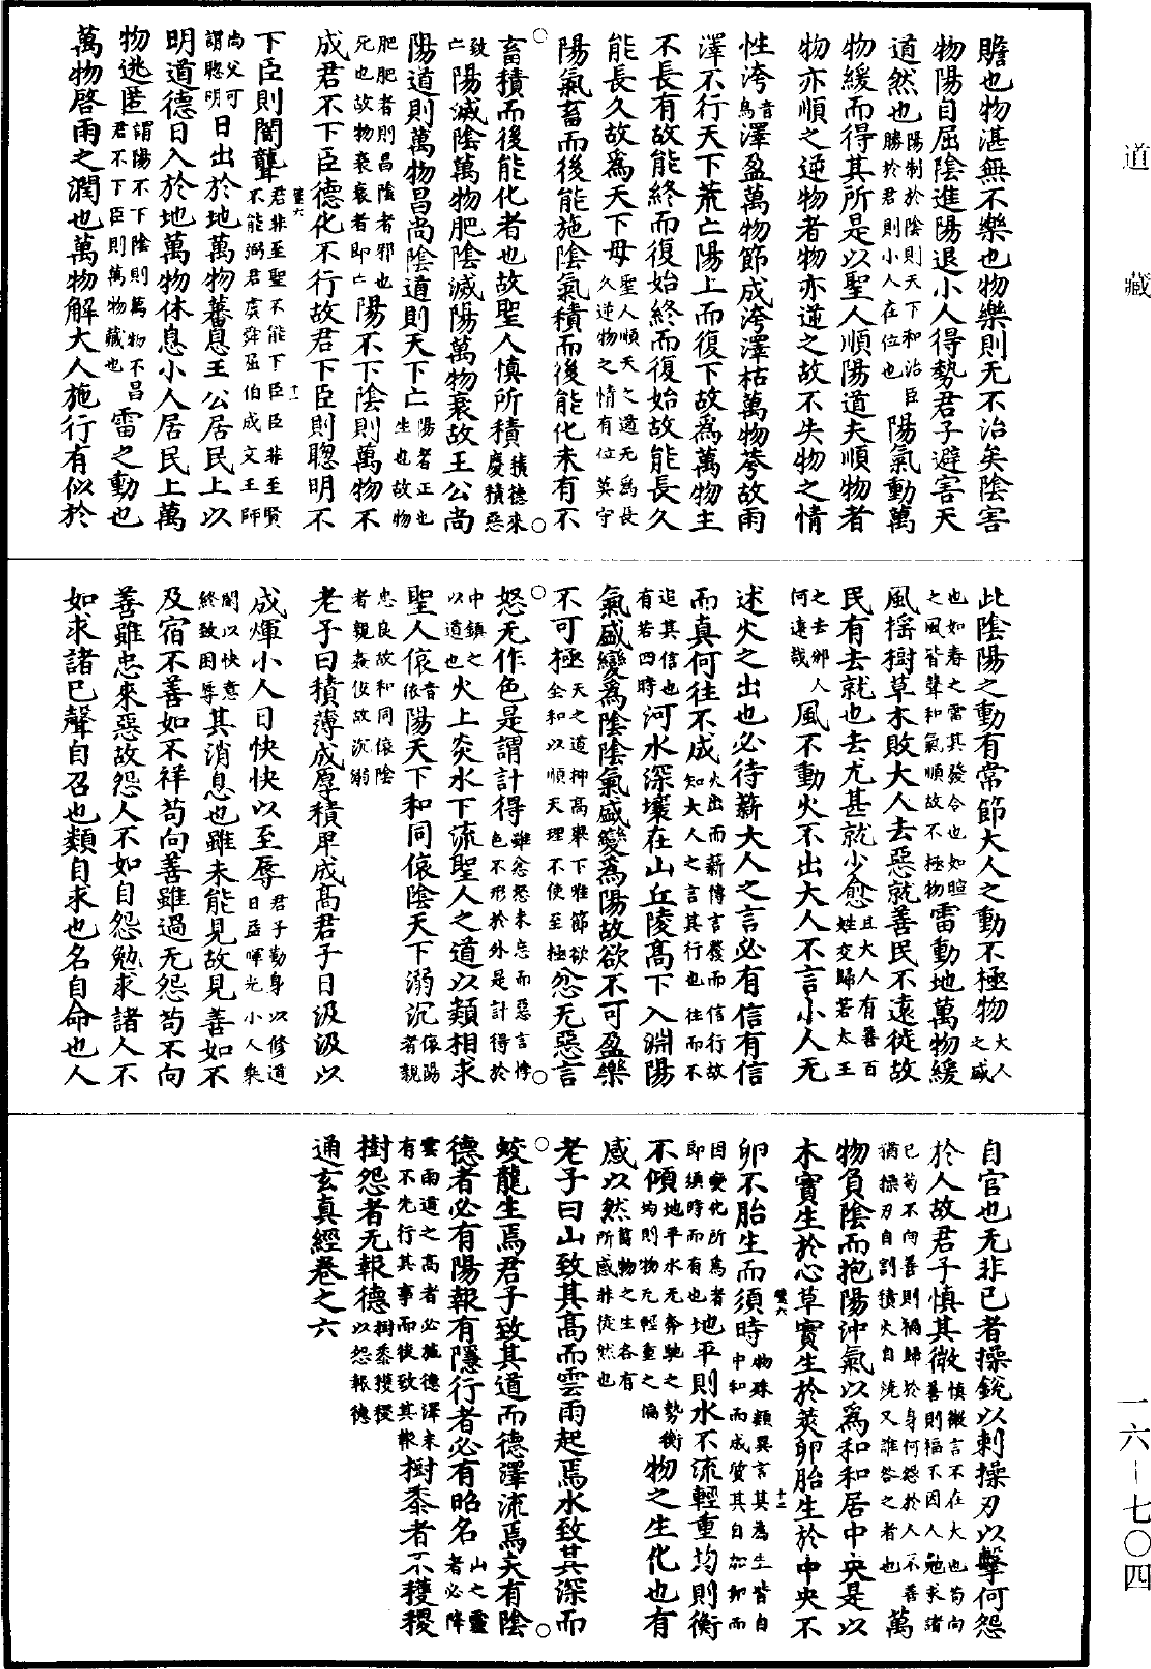 道藏
一六—七〇四
贍也物湛無不樂也物樂則无不治矣陰害
物陽自屈陰進陽退小人得勢君子避害天
道然也陽制於陰則天下和治臣勝於君則小人在位也陽氣動萬
物緩而得其所是以聖人順陽道夫順物者
物亦順之逆物者物亦逆之故不失物之情
性洿音烏澤盈萬物節成洿澤枯萬物荂故雨
澤不行天下荒亡陽上而復下故爲萬物主
不長有故能終而復始終而復始故能長久
能長久故爲天下母聖人順天之道无爲長久逆物之情有位莫守
陽氣畜而後能施陰氣積而後能化未有不
畜積而後能化者也故聖人慎所積積德來慶積惡
致亡陽滅陰萬物肥陰滅陽萬物衰故王公尚
陽道則萬物昌尚陰道則天下亡陽者正也生也故物
肥肥者則昌陰者邪也死也故物衰衰者即亡陽不下陰則萬物不
成君不下臣德化不行故君下臣則聰明不
下臣則闇聾君非至聖不能下臣臣非至賢不能弼君虞舜函伯成文王師
尚父可謂聰明日出於地萬物蕃息王公居民上以
明道德日入於地萬物休息小人居民上萬
物逃匿謂陽不下陰則萬物不昌君不下臣則萬物藏也雷之動也
萬物啓雨之潤也萬物解大人施行有似於
此陰陽之動有常節大人之動不極物大人之感
也如春之雷其發令也如暄之風皆聲和氣順故不極物雷動地萬物緩
風摇樹草木敗大人去惡就善民不遠徙故
民有去就也去尤甚就少愈且大人有善百姓交歸若太王
之去邠人何遠哉風不動火不出大人不言小人无
述火之出也必待薪大人之言必有信有信
而真何往不成火出而薪傳言發而信行故知大人之言其行也往而不
追其信也有若四時河水深壤在山丘陵高下入淵陽
氣盛變爲陰陰氣盛變爲陽故欲不可盈樂
不可極天之道抑高舉下唯節欲全和以順天理不使至極忿无惡言
怒无作色是謂計得雖忿怒未忘而惡言悖色不形於外是計得於
中鎮之以道也火上炎水下流聖人之道以類相求
聖人偯音依陽天下和同偯陰天下溺沉偯陽者親
忠良故和同偯陰者親姦佞故沉溺
老子曰積薄成厚積卑成高君子日汲汲以
成煇小人日快快以至辱君子勤身以修道日益暉光小人乘
闇以快意終致困辱其消息也雖未能見故見善如不
及宿不善如不祥苟向善雖過无怨苟不向
善雖忠來惡故怨人不如自怨勉求諸人不
如求諸己聲自召也類自求也名自命也人
自官也无非己者操銳以刺操刃以擊何怨
於人故君子慎其微慎微言不在大也苟向善則福不因人勉求諸
已苟不向善則禍歸於身何怨於人不善猶操刃自割積火自燒又誰咎之者也萬
物負陰而抱陽沖氣以爲和和居中央是以
木實生於心草實生於莢卵胎生於中央不
卵不胎生而須時物殊類異言其爲生皆自中和而成質其自加卵而
因變化所爲者即須時而有也地平則水不流輕重均則衡
不傾地平水无奔馳之勢衡均則物无輕重之偏物之生化也有
感以然萬物之生各有所感非徒然也
老子曰山致其高而雲雨起焉水致其深而
蛟龍生焉君子致其道而德澤流焉夫有陰
德者必有陽報有隱行者必有昭名山之靈者必降
雲雨道之高者必施德澤未有不先行其事而後致其報樹黍者不穫稷
樹怨者无報德樹黍穫稷以怨報德
通玄真經卷之六